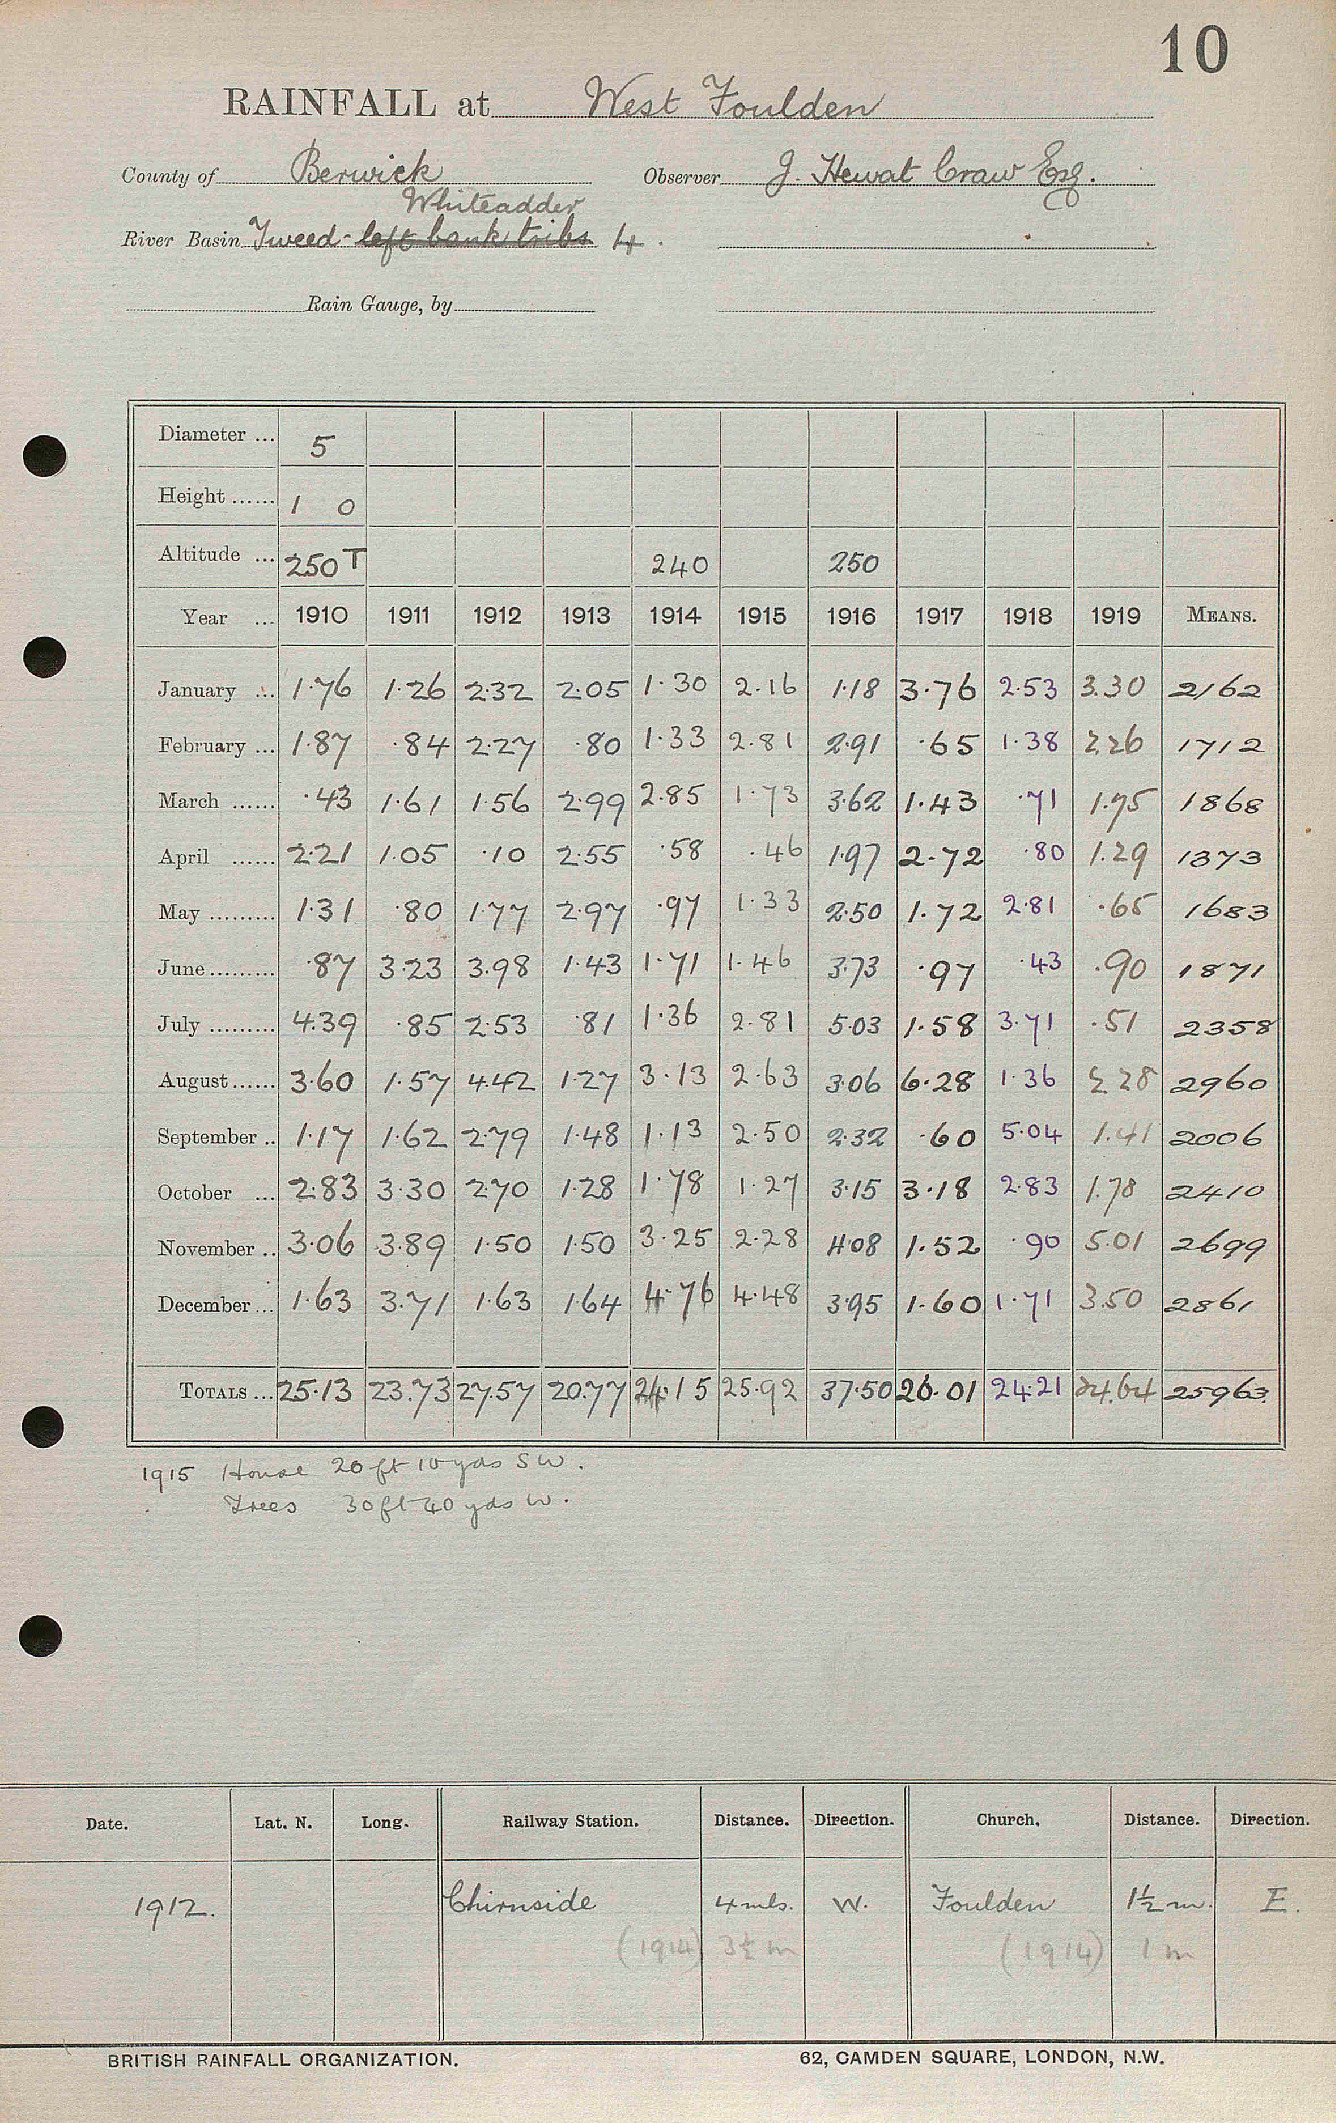 10
RAINFALL at West Foulden
County of Berwick Observer J. Hewat Craw Esq.
Whiteadder
River Basin Tweed - left bank tribs 4.
Rain Gauge, by
Diameter ... 5
Height ...... 1 0
Altitude ... 250 T 240 250
Year ... 1910 1911 1912 1913 1914 1915 1916 1917 1918 1919 MEANS.
January ... 1.76 1.26 2.32 2.05 1.30 2.16 1.18 3.76 2.53 3.30 2162
February ... 1.87 .84 2.27 .80 1.33 2.81 2.91 .65 1.38 2.26 1712
March ...... .43 1.61 1.56 2.99 2.85 1.73 3.62 1.43 .71 1.75 1868
April ...... 2.21 1.05 .10 2.55 .58 .46 1.97 2.72 .80 1.29 1373
May ......... 1.31 .80 1.77 2.97 .97 1.33 2.50 1.72 2.81 .65 1683
June ......... .87 3.23 3.98 1.43 1.71 1.46 3.73 .97 .43 .90 1871
July ......... 4.39 .85 2.53 .81 1.36 2.81 5.03 1.58 3.71 .51 2358
August ...... 3.60 1.57 4.42 1.27 3.13 2.63 3.06 6.28 1.36 2.28 2960
September .. 1.17 1.62 2.79 1.48 1.13 2.50 2.32 .60 5.04 1.41 2006
October ... 2.83 3.30 2.70 1.28 1.78 1.27 3.15 3.18 2.83 1.78 2410
November .. 3.06 3.89 1.50 1.50 3.25 2.28 4.08 1.52 .90 5.01 2699
December ... 1.63 3.71 1.63 1.64 4.76 4.48 3.95 1.60 1.71 3.50 2861
TOTALS ... 25.13 23.73 27.57 20.77 24.15 25.92 37.50 26.01 24.21 24.64 25963
1915 House 20 ft 10 yds SW.
Trees 30 ft 40 yds W.
Date. Lat. N. Long. Railway Station. Distance. Direction. Church. Distance. Direction.
1912. Chirnside 4 mls. W. Foulden 1½ m. E.
(1914) 3½ m (1914) 1 m
BRITISH RAINFALL ORGANIZATION. 62, CAMDEN SQUARE, LONDON, N.W.